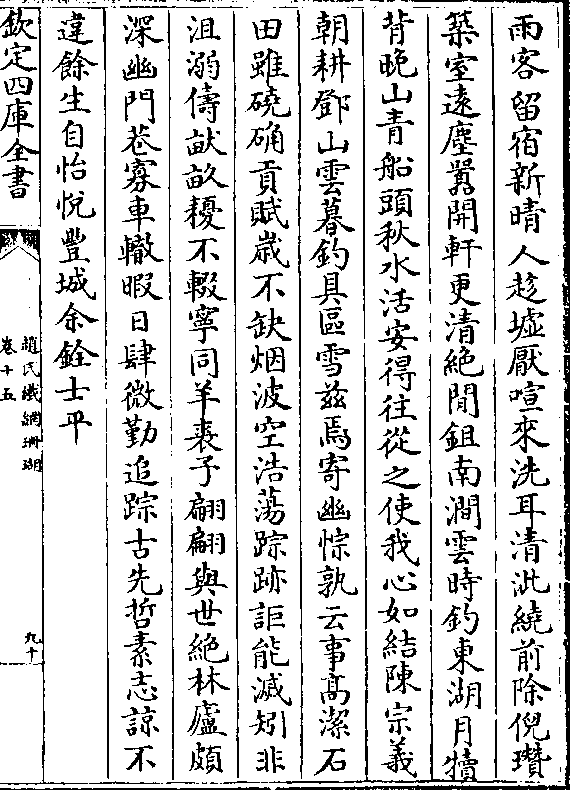 雨客留宿新晴人趁墟厭喧來洗耳清泚繞前除倪瓚
築室遠塵囂開軒更清絶閒鉏南澗雲時釣東湖月犢
背晚山青船頭秋水活安得往從之使我心如結陳宗義
朝耕鄧山雲暮釣具區雪兹焉寄幽悰孰云事髙潔石
田雖磽确貢賦歲不缺烟波空浩蕩踪跡詎能滅矧非
沮溺儔畎畝耰不輟寧同羊裘子翩翩與世絶林廬頗
深幽門巷寡車轍暇日肆微勤追踪古先哲素志諒不
違餘生自怡悅豐城余銓士平
欽定四庫全書
趙氏鐵網珊瑚
卷十五
九十